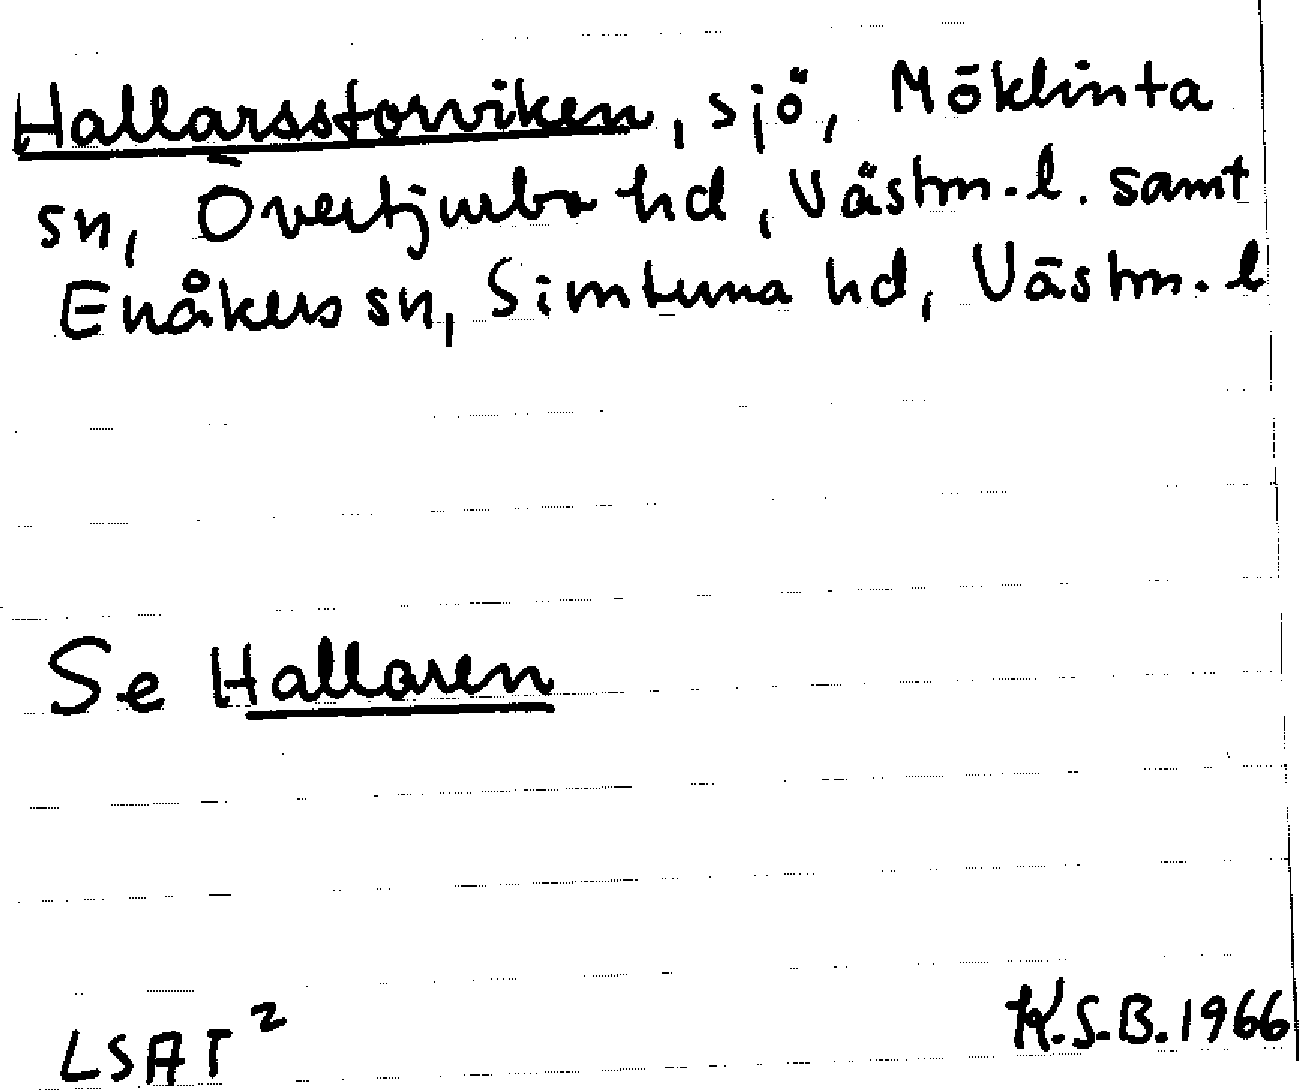 Hallarsstorviken, sjö, Möklinta
sn, Övertjurbo hd, Västm.l. samt
Enåkers sn, Simtuna hd, Västm.l
Se Hallaren
LSAT²
K.S.B. 1966